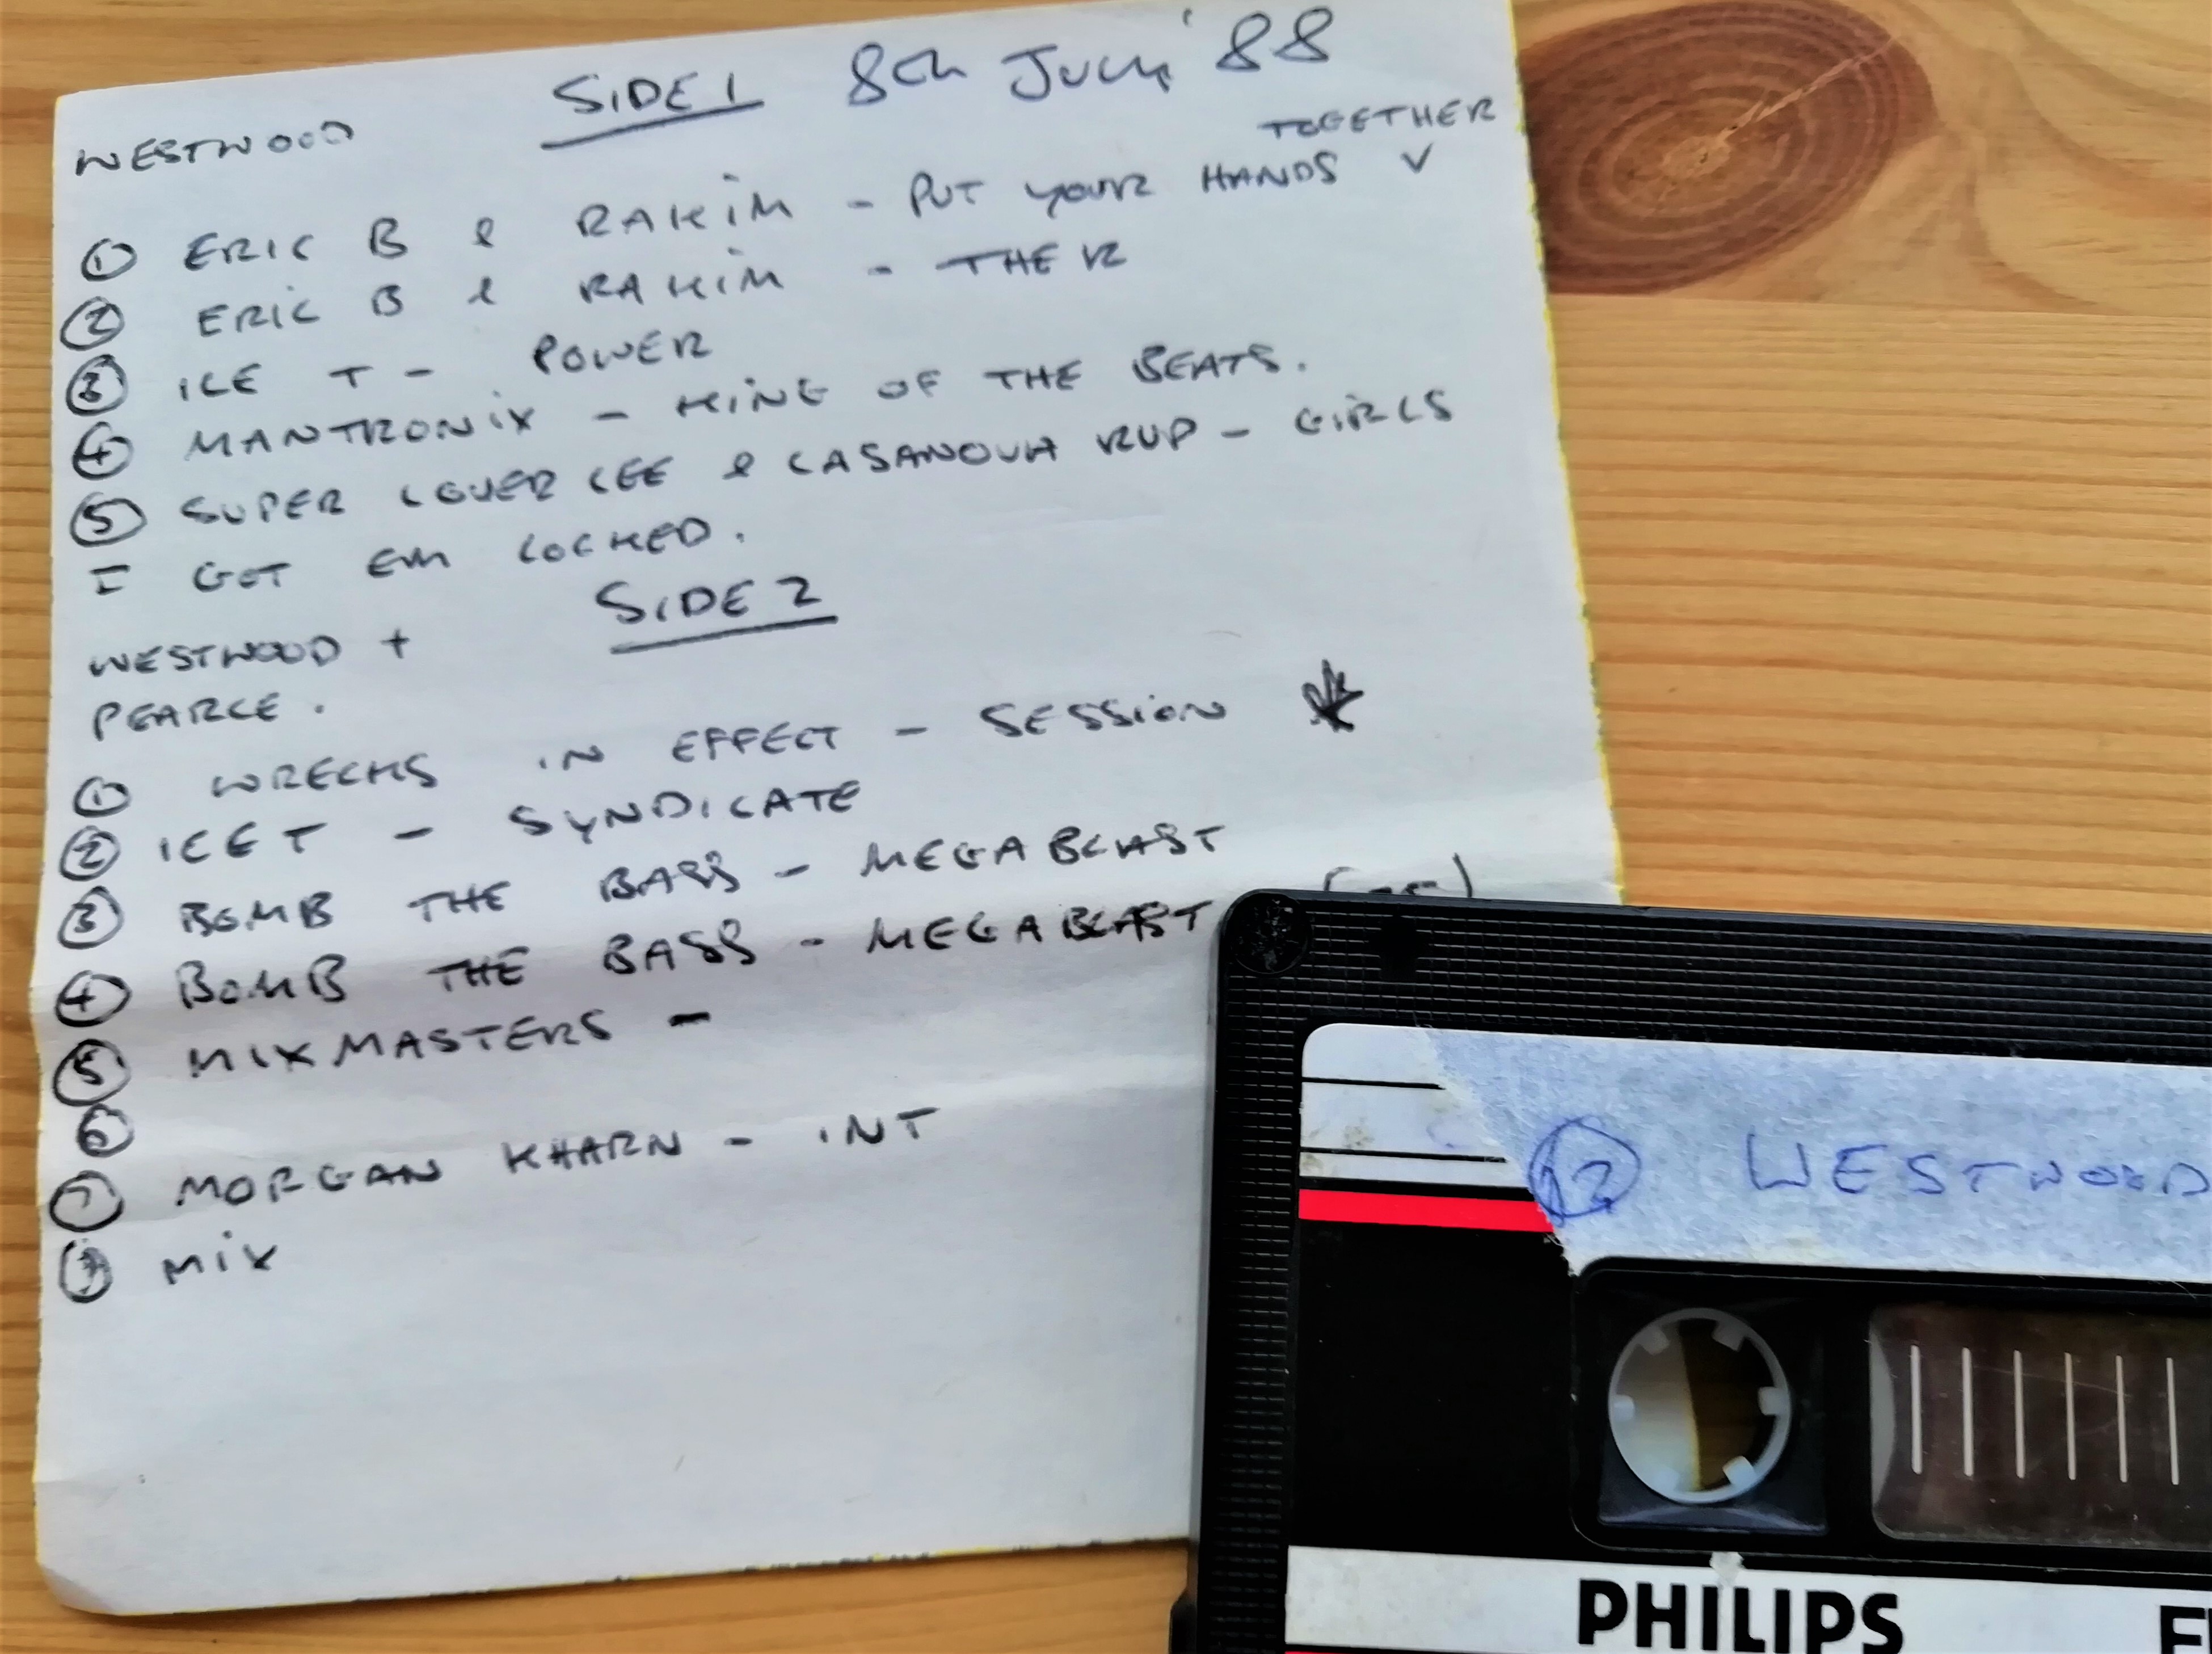 SIDE 1 8th July '88
WESTWOOD
TOGETHER
① ERIC B & RAKIM - PUT YOUR HANDS V
② ERIC B & RAKIM - THE R
③ ICE T - POWER
④ MANTRONIX - KING OF THE BEATS.
⑤ SUPER LOVER CEE & CASANOVA RUD - GIRLS
I GOT EM LOCKED.
SIDE 2
WESTWOOD +
PEARCE.
① WRECKS IN EFFECT - SESSION
② ICE T - SYNDICATE
③ BOMB THE BASS - MEGABLAST
④ BOMB THE BASS - MEGABLAST
⑤ MIXMASTERS -
⑥
⑦ MORGAN KHARN - INT
MIX
⑫ WESTWOOD
PHILIPS